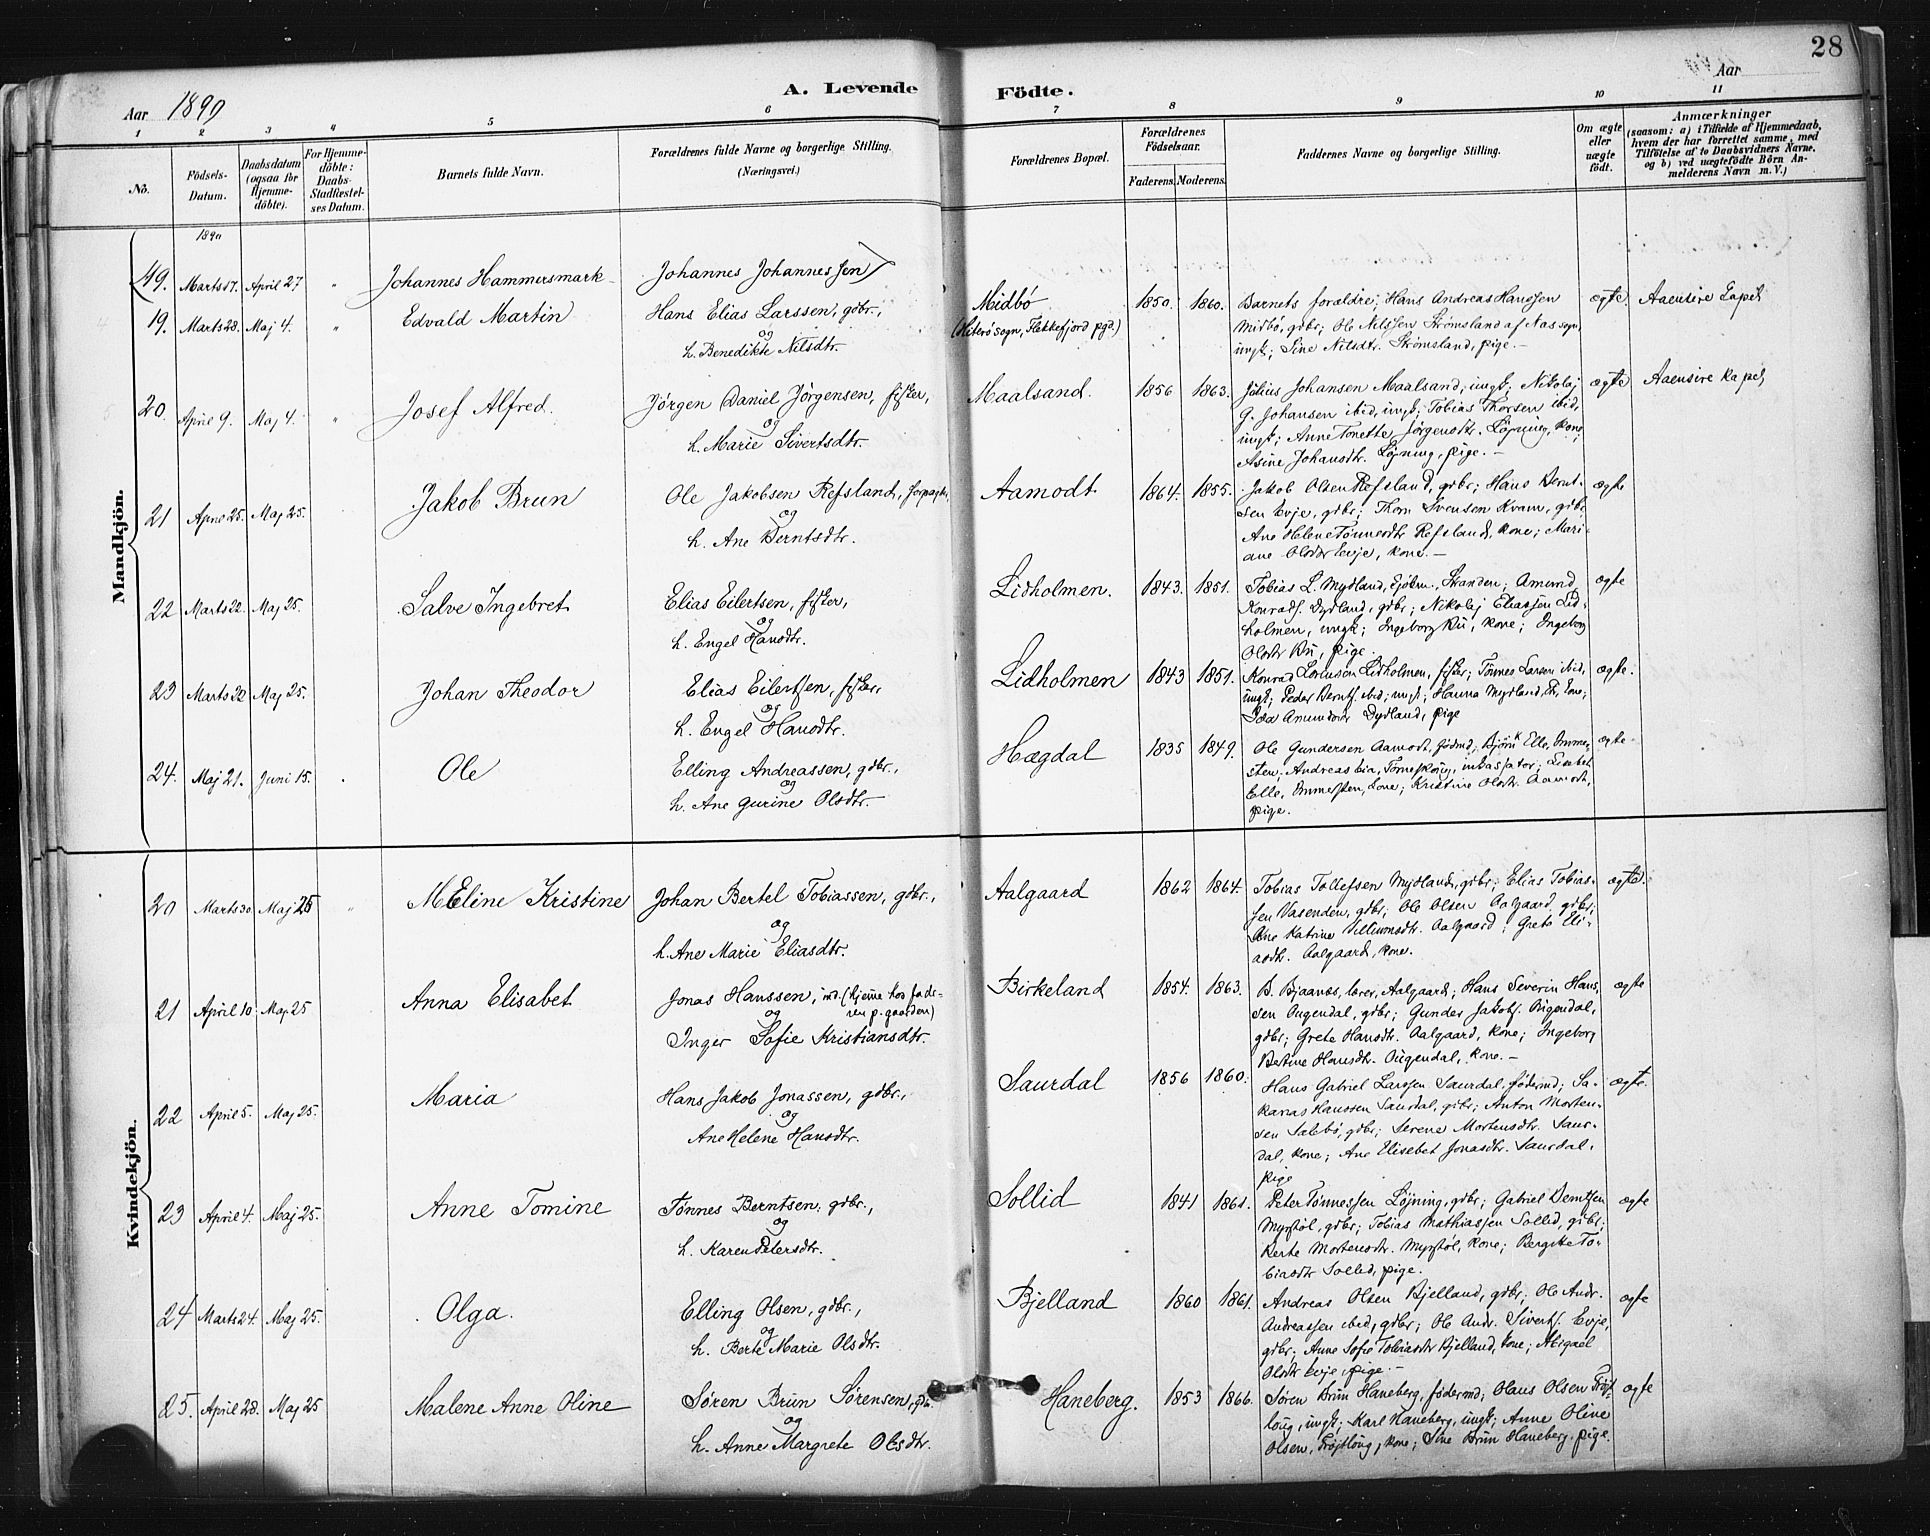 28
Aar 1890
A. Levende Födte.
Aar
1 2 3 4 5 6 7 8 9 10 11
No.
Födsels-Datum.
Daabsdatum (ogsaa for Hjemme-döbte).
For Hjemme-döbte: Daabs-Stadfæstel-ses Datum.
Barnets fulde Navn.
Forældrenes fulde Navne og borgerlige Stilling.
(Næringsvei.)
Forældrenes Bopæl.
Forældrenes Födselsaar.
Faderens. Moderens.
Faddernes Navne og borgerlige Stilling.
Om ægte eller uægte födt.
Anmærkninger
(saasom: a) i Tilfælde af Hjemmedaab,
hvem der har forrettet samme, med
Tilföielse af to Daabsvidners Navne,
og b) ved uægtefödte Börn An-
melderens Navn m.V.)
Mandkjön.
1890
(19. Marts 17. April 27 " Johannes Hammersmark Johannes Johannessen)
19. Marts 28. Maj 4. " Edvald Martin
Hans Elias Larssen, gdbr.,
og
h. Benedikte Nilsdtr.
Midbö
(Hiterö sogn, Flekkefjord pgd.)
1850. 1860.
Barnets forældre; Hans Andreas Hanssen
Midbö, gdbr; Ole Nilssen Strömsland af Nas sogn,
ungk; Sine Nilsdtr. Strömsland, pige. –
ægte. Aaensire Kapel
20. April 9. Maj 4. " Josef Alfred.
Jörgen Daniel Jörgensen, fisker,
og
h. Marie Sivertsdtr.
Maalsand. 1856 1863.
Julius Johansen Maalsand, ungk; Nikolaj
G. Johansen ibid, ungk; Tobias Thorsen ibid,
ungk; Anne Tonette Jörgensdtr. Löjning, kone;
Asine Johansdtr. Löjning, pige. –
ægte Aaensire Kapel
21 April 25. Maj 25. Jakob Brun
Ole Jakobsen Refsland, forpagter,
og
h. Ane Berntsdtr.
Aamodt 1864. 1855.
Jakob Olsen Refsland, gdbr; Hans Bernt-
sen Evje, gdbr; Thom Svensen Kvam, gdbr;
Ane Helene Tönnesdtr Refsland, kone; Mari-
ane Olsdtr Evje, kone. –
ægte
22 Marts 22. Maj 25. Salve Ingebret
Elias Eilertsen, fisker,
og
h. Engel Hansdtr.
Lidholmen. 1843. 1851.
Tobias L. Mydland, Stranden; Amund
Konrads. Dydland, gdbr; Nikolaj Eliassen Lid-
holmen, ungk; Ingeborg Bu, kone; Ingeborg
Olsdtr Bu, pige.
ægte
23 Marts 22 Maj 25. Johan Theodor
Elias Eilertsen, fisker,
og
h. Engel Hansdtr.
Lidholmen 1843 1851.
Konrad Lidholmen, fisker; Tönnes Larsen ibid,
ungk; Peder Bernts. ibid, ungk; Hanna Mydland, kone;
Amundsdtr Dydland, pige
ægte.
24. Maj 21. Juni 15. Ole
Elling Andreassen, gdbr.,
og
h. Ane Gurine Olsdtr.
Hægdal 1835 1849.
Ole Gundersen Aamodt, födmd; Elle, Omme-
sten; Andreas Lia, Tonneskoug, inkassator; Lisabet
Elle, Ommesten, kone; Kristine Olsdtr. Aamodt,
pige.
ægte
Kvindekjön.
20 Marts 30. Maj 25 " Meline Kristine
Johan Bertel Tobiassen, gdbr.,
og
h. Ane Marie Eliasdtr.
Aalgaard 1862 1864.
Tobias Tollefsen Mydland, gdbr; Elias Tobias-
sen Vasenden, gdbr; Ole Olsen Aalgaard, gdbr;
Ane Katrine Villumsdtr. Aalgaard; Grete Eli-
asdtr. Aalgaard, kone.
ægte.
21 April 10. Maj 25 Anna Elisabet
Jonas Hanssen, ind. (hjemme hos fade-
ren p. gaarden)
og
Inger Sofie Kristiansdtr.
Birkeland 1854. 1863.
B. Bjaanes, lærer, Aalgaard; Hans Severin Hans-
sen Ougendal, gdbr; Gunder Jakobs. Ougendal,
gdbr; Grete Hansdtr. Aalgaard, kone; Ingeborg
Bertine Hansdtr. Ougendal, kone. –
ægte
22 April 5. Maj 25. Maria
Hans Jakob Jonassen, gdbr.,
og
Ane Helene Hansdtr.
Saurdal 1856 1860.
Hans Gabriel Larssen Saurdal, födermd; Sa-
karias Hanssen Saurdal, gdbr; Anton Morten-
sen Salebö, gdbr; Serene Mortensdtr. Saur-
dal, kone; Ane Elisebet Jonasdtr. Saurdal,
pige
ægte.
23 April 4. Maj 25. Anne Tomine
Tönnes Berntsen, gdbr.,
og
h. Karen Petersdtr.
Sollid 1841 1861.
Peter Tönnessen Löjning, gdbr; Gabriel Berntsen
Mysstöl, gdbr; Tobias Mathiassen Sollid, gdbr;
Berte Mortensdtr. Mysstöl, kone; Bergitte To-
biasdtr Sollid, pige.
ægte
24 Marts 24. Maj 25. Olga.
Elling Olsen, gdbr.,
og
h. Berte Marie Olsdtr.
Bjelland 1860 1861.
Andreas Olsen Bjelland, gdbr; Ole Andr.
Andreassen ibid, gdbr; Ole Andr. Siverts. Evje,
gdbr; Anne Sofie Tobiasdtr Bjelland, kone; Abigael
Olsdtr Evje, pige. –
ægte
25. April 28. Maj 25 Malene Anne Oline
Sören Brun Sörensen, gdb.
og
h. Anne Margrete Olsdtr.
Haneberg. 1853 1866.
Sören Brun Haneberg, födermd; Olaus Olsen Fröjt-
loug, ungk; Karl Haneberg, ungk; Anne Oline
Olsen, Fröjtloug, kone; Sine Brun Haneberg, pige.
ægte